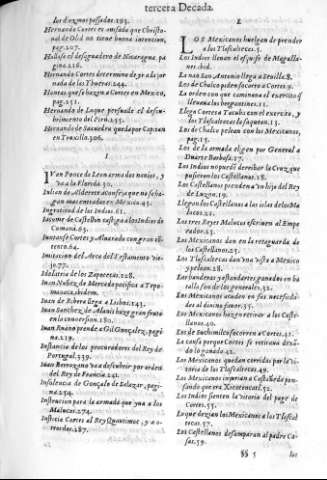 tercera Decada.
los diez mos passados.293.
Hernando Cortes es auisado que Christo-
ual de Olid no tiene buena intencion,
pag.207.
Hallase el desaguadero de Nicaragua. pa
gina.216.
Hernando Cortes determina de yr a la jor
nada de las Ybueras.244.
Honras que se hazen a Cortes en Mexico,
pag.251.
Hernando de Luque persuade el descu-
brimiento del Piru.
Hernando de Saauedra queda por Capitan
en Truxillo.
I.
Juan Ponce de Leon arma dos nauios, y
va a la Florida.30.
Iulian de Alderete
gan mas entrada en Mexico.45.
Ingratitud de los Indios.61.
Iayme de Castellon castiga a los Indios de
Cumana.63.
Iuntanse Cortes y Aluarado con gran
tento.64.
Imitacion del Arco del Testamento Vie-
jo.77.
Idolatria de los Zapotecas.128.
Iuan Nuñez de Mercado pacifica a Tepo-
Iuan de Ribera llega a Lisboa.143.
Iuan Sanchez de Alaniz haze gran fruto
en la conuersion.180.
Iuan Ruano prende a Gil Gonçalez, pagi-
na.219.
Instancia de los procuradores del Rey de
Portugal.239.
Iuan Berrazano va a descubrir por orden
del Rey de Francia.241.
Insolencia de Gonçalo de Salazar, pagi-
na.254.
Instrucion para la armada que yua a los
Malucos.274.
Iusticia Cortes al Rey Quautimoc, y a o-
tros dos.287.
L
LOS Mexicanos huelgan de prender
a los Tlascaltecas.5.
Los Indios lleuan el esquife de Magalla-
nes.ibid.
La nao San Antonio llega a Seuilla.8.
Los de Chalco piden socorro a Cortes.9.
La orden con que camina el exercito
lleuaua los bergantines.11.
Llega Cortes a Tacuba con el exercito, y
los Tlascaltecas la saquean.13.
Los de Chalco pelean con los Mexicanos,
pag.15.
Los de la armada eligen por General a
Duarte Barbosa.17.
Los Indios no puede derribar la Cruz que
pusieron los Castellanos.18.
Los Castellanos prenden a vn hijo del Rey
de Luzon.19.
Llegan los Castellanos a las islas de los Ma
lucos.21.
Los tres Reyes Malucos escriuen al Empe
rador.23.
Los Mexicanos dan en la retaguarda de
los Castellanos.25.
Los Tlascaltecas dan vna vista a Mexico
y pelean.28.
Las banderas y estandartes ponen en ba
talla son de los generales.32.
Los Mexicanos acuden en sus necessida-
des al diuino fauor.35.
Los Mexicanos hazen retirar a los Caste-
llanos.40.
Los de Suchimilco socorren a Cortes.41.
La causa porque Cortes se retiraua dexã-
do lo ganado.42.
Los Mexicanos quedan corridos por la vi-
toria de los Tlascaltecas.49.
Los Mexicanos injurian a Castañeda pen-
sando que era Xicotencatl.52.
Los Indios sienten la vitoria del page de
Cortes.55.
Lo que dezian los Mexicanos a los Tlascal
tecas.57.
Los Castellanos desamparan al padre Ca-
sas.59.
§§ 5
Los